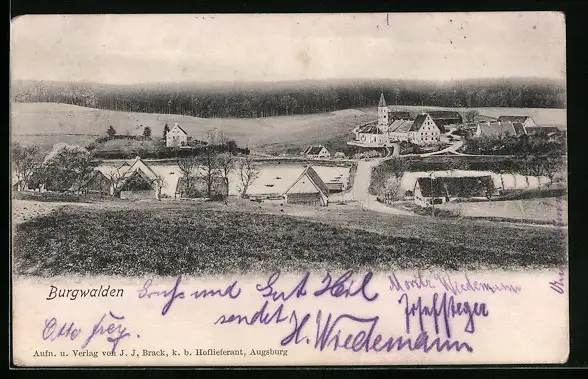 Burgwalden
Gruss und Gut Heil
sendet H. Wiedemann
Moritz Wiedemann
Josef Steger
Otto Frey.
Aufn. u. Verlag von J. J. Brack, k. b. Hoflieferant, Augsburg